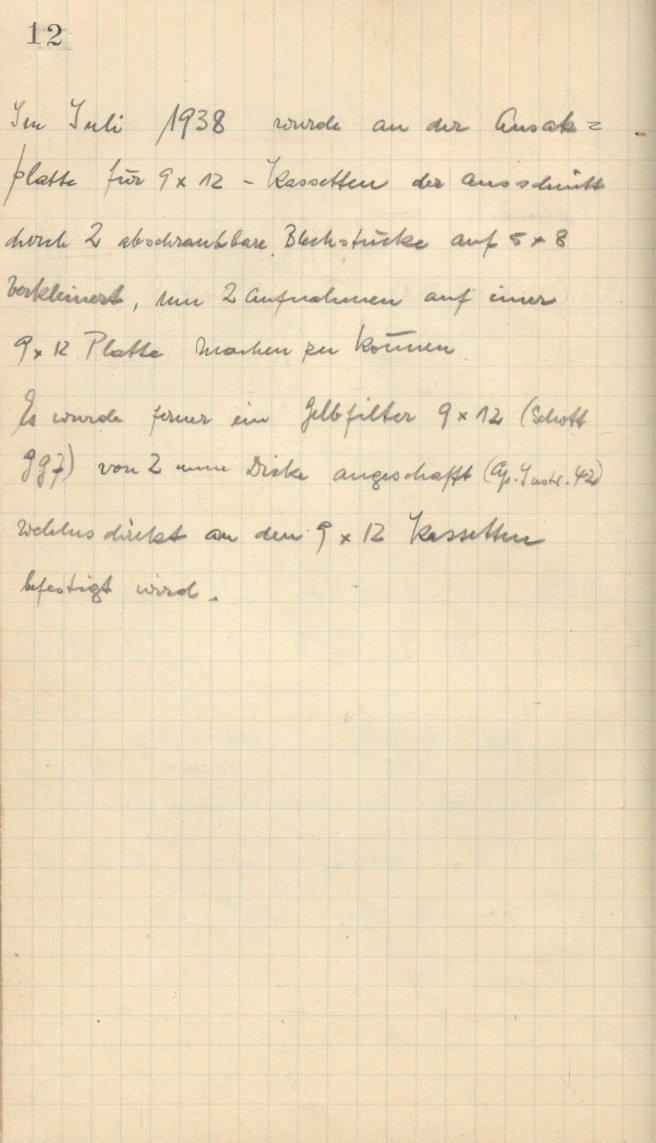 12
Im Juli 1938 wurde an der Ansatz=
platte für 9 x 12 - Kassetten der Ausschnitt
durch 2 abschraubbare Blechstücke auf 5 x 8
verkleinert, um 2 Aufnahmen auf einer
9 x 12 Platte machen zu können
Es wurde ferner ein Gelbfilter 9 x 12 (Schott
GG7) von 2 mm Dicke angeschafft (Ap. Instr. 42)
welches direkt an den 9 x 12 Kassetten
befestigt wird.